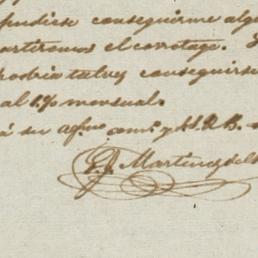 pudiese conseguirme alg
artiremos el corretage.
podria talvez conseguirse
al 1% mensual.
á su afmo amo y S.S.Q.B.
Martinez del